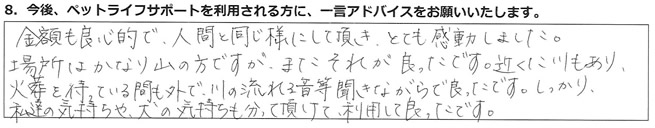 8．今後、ペットライフサポートを利用される方に、一言アドバイスをお願いいたします。
金額も良心的で、人間と同じ様にして頂き、とても感動しました。
場所はかなり山の方ですが、またそれが良ったです。近くに川もあり、
火葬を待っている間も外で、川の流れる音等聞きながらで良ったです。しっかり、
私達の気持ちや、犬の気持ちも分って頂けて、利用して良ったです。